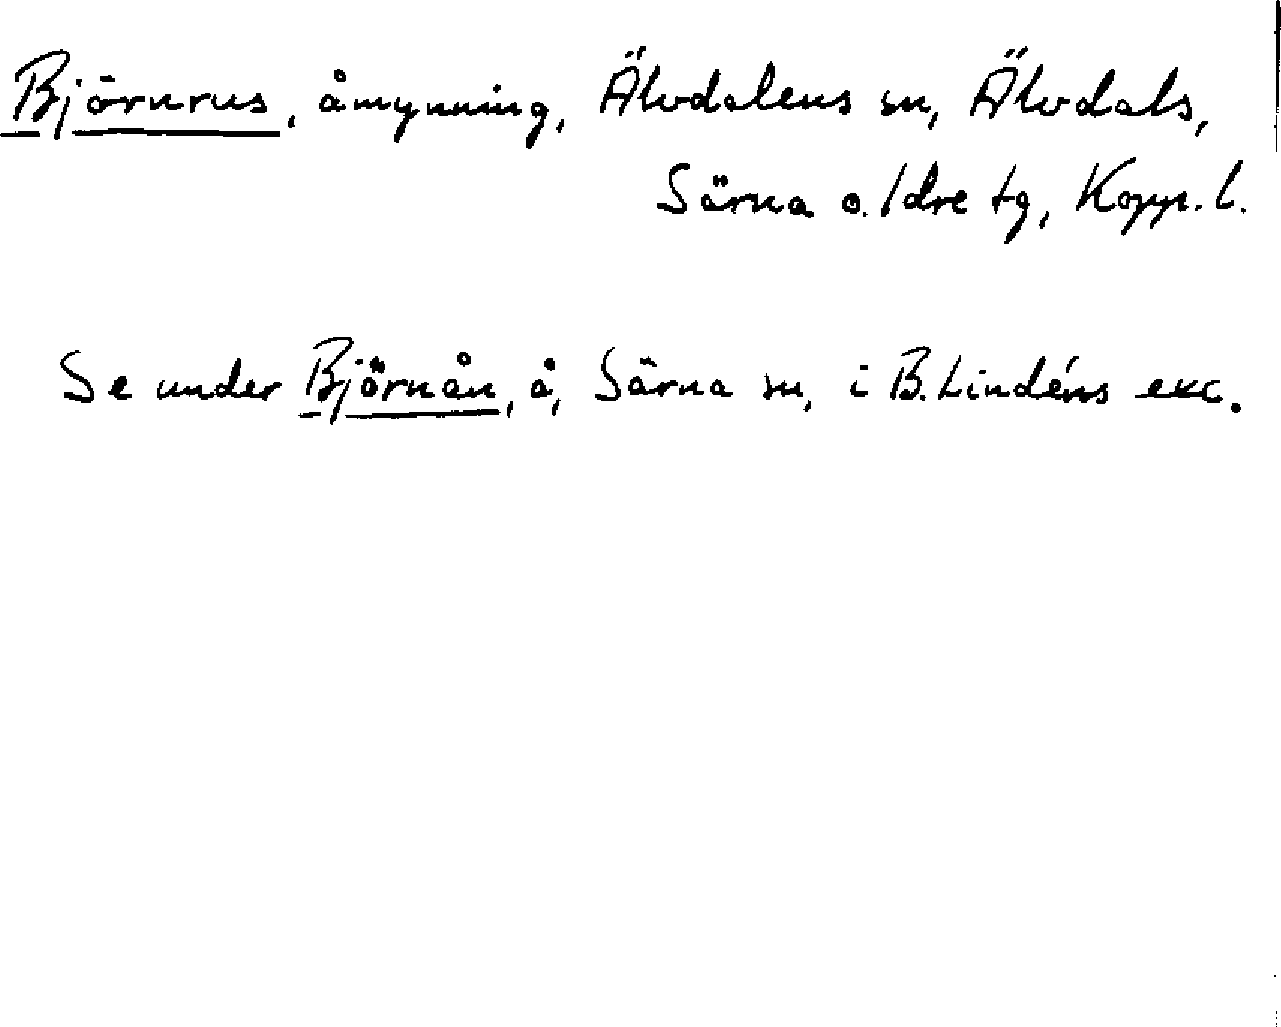 Björnrus, åmynning, Älvdalens sn, Älvdals,
Särna o. Idre tg, Kopp. l.
Se under Björnån, å, Särna sn, i B. Lindéns exc.